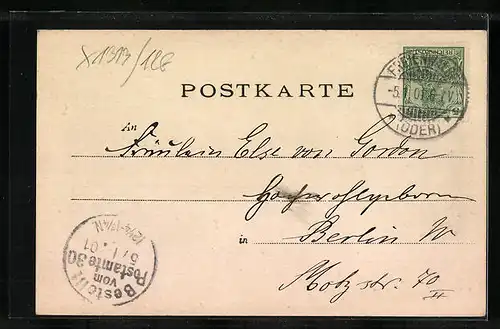 X1313/126
POSTKARTE
(ODER)
An
Fräulein Else von Gordon
Hochwohlgeboren
in Berlin W
Motzstr. 70 II
Bestellt
vom
Postamte 30
5/1.01
12¼-1¾N.